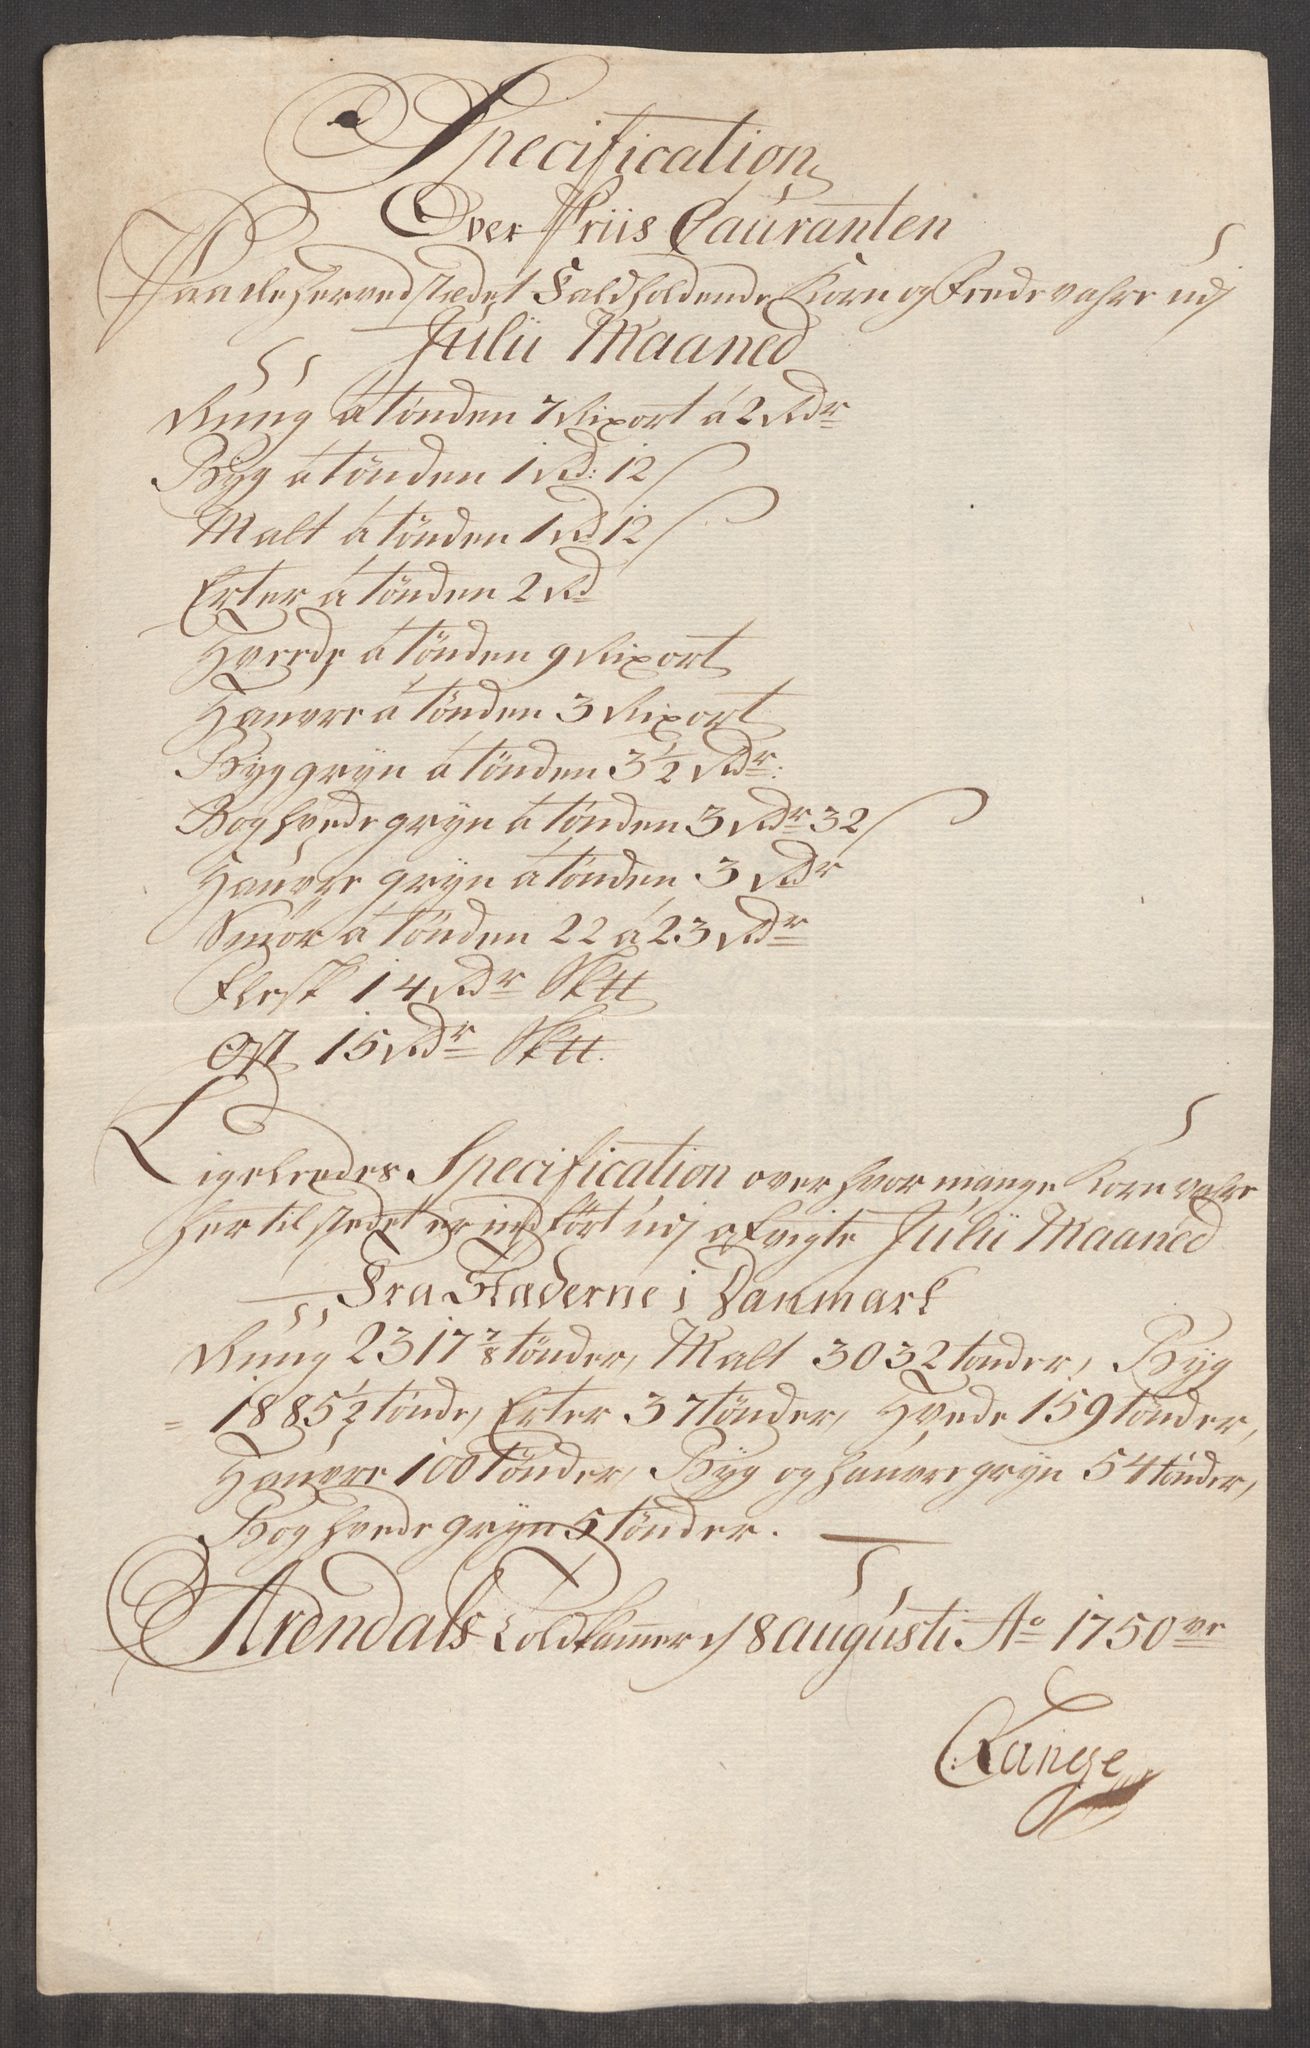 Specification
Over Priis Cauranten
Paa de her ved stædet Faldholdende Korn og Fede vahre udj
Julii Maaned
Rúug á tönden 7 Rixort á 2 Rdr
Byg á tönden 1 Rd: 12 s
Malt á tönden 1 Rd 12 s
Erter á tönden 2 Rd
Hvede á tönden 9 Rixort
Haúvre á tönden 3 Rixort
Byggryn á tönden 3 1/2 Rdr:
Boghvede gryn á tönden 3 Rdr 32 s
Haúvre gryn á tönden 3 Rdr
Smör á tönden 22 á 23 Rdr
Flesk 14 Rdr Sktt
Ost 15 Rdr Sktt.
Ligeledes Specification over hvor mange Korn vahre
her til stedet er indfört udj afvigte Julii Maaned
Fra Stæderne i Danmark
Rúug 2317 7/8 tönder, Malt 3032 tönder, Byg
= 1885 1/2 tönde, Erter 37 tönder, Hvede 159 tönder,
Haúvre 100 tönder, Byg og haúvre gryn 54 tönder,
Boghvede gryn 5 tönder.
Arendals Toldkammer d 8 augústi Ao 1750